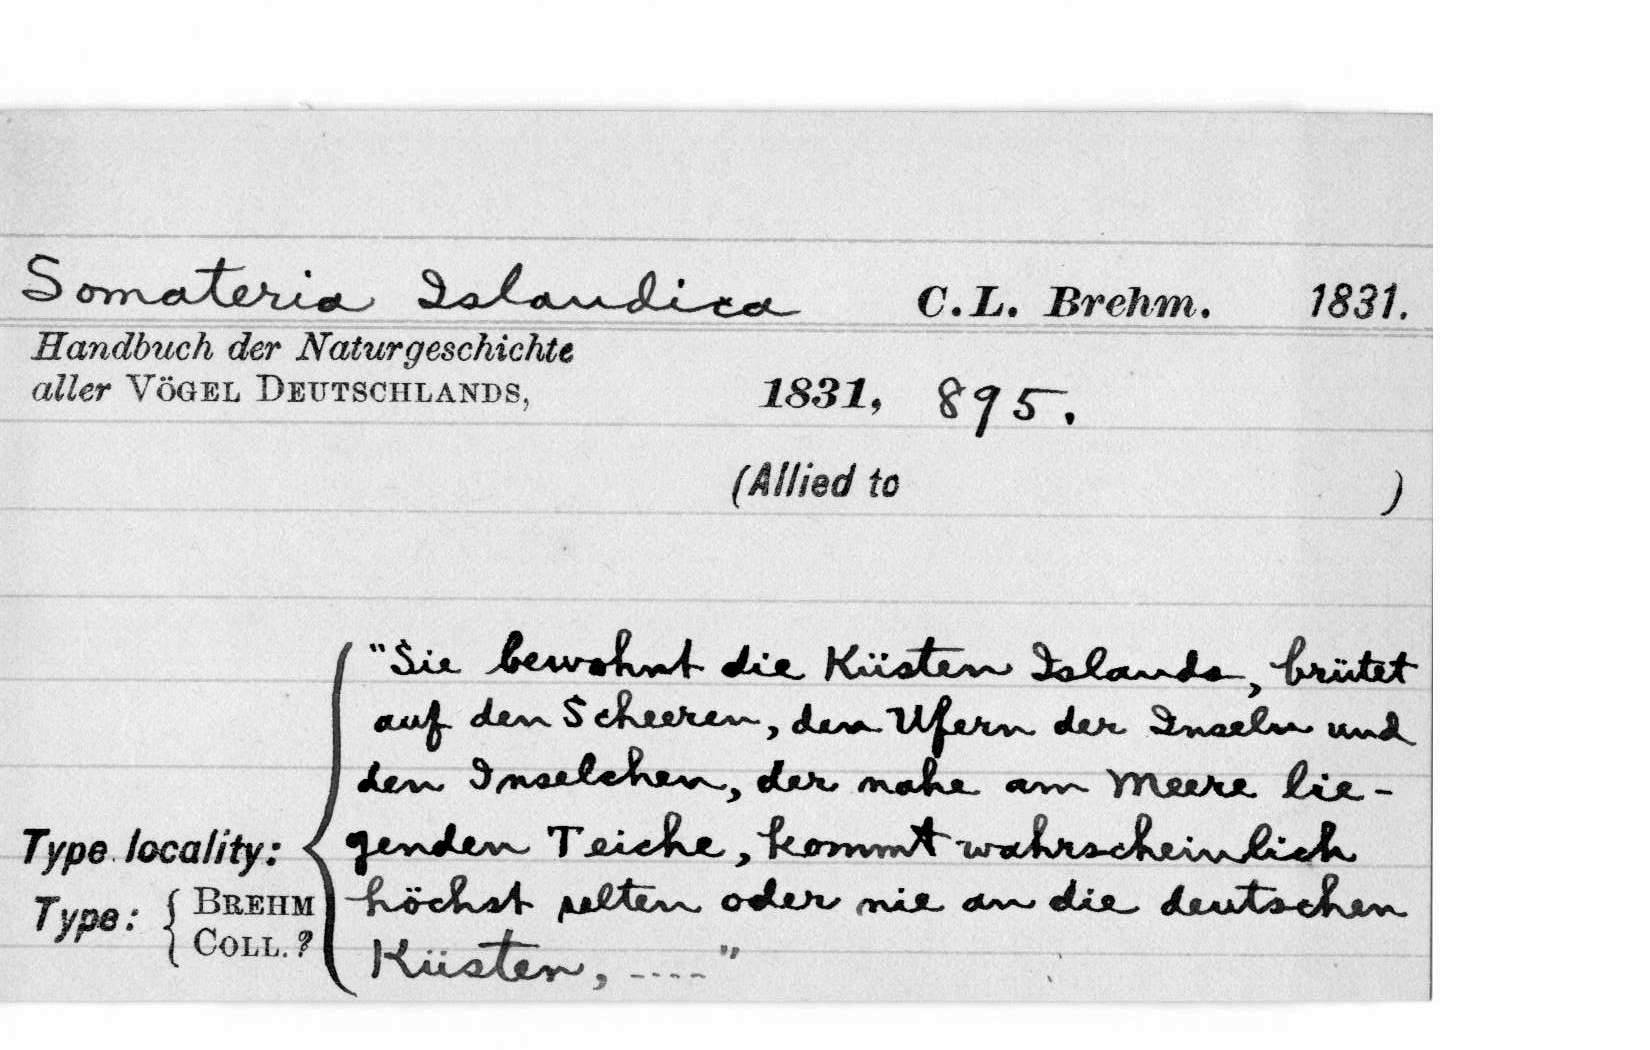 Somateria Islandica C.L. Brehm. 1831.
Handbuch der Naturgeschichte
aller VÖGEL DEUTSCHLANDS, 1831, 895.
(Allied to )
"Sie bewohnt die Küsten Islands, brütet
auf den Scheeren, den Ufern der Inseln und
den Inselchen, der nahe am Meere lie-
Type locality: genden Teiche, kommt wahrscheinlich
Type: { BREHM COLL. ? höchst selten oder nie an die deutschen
Küsten, ----"